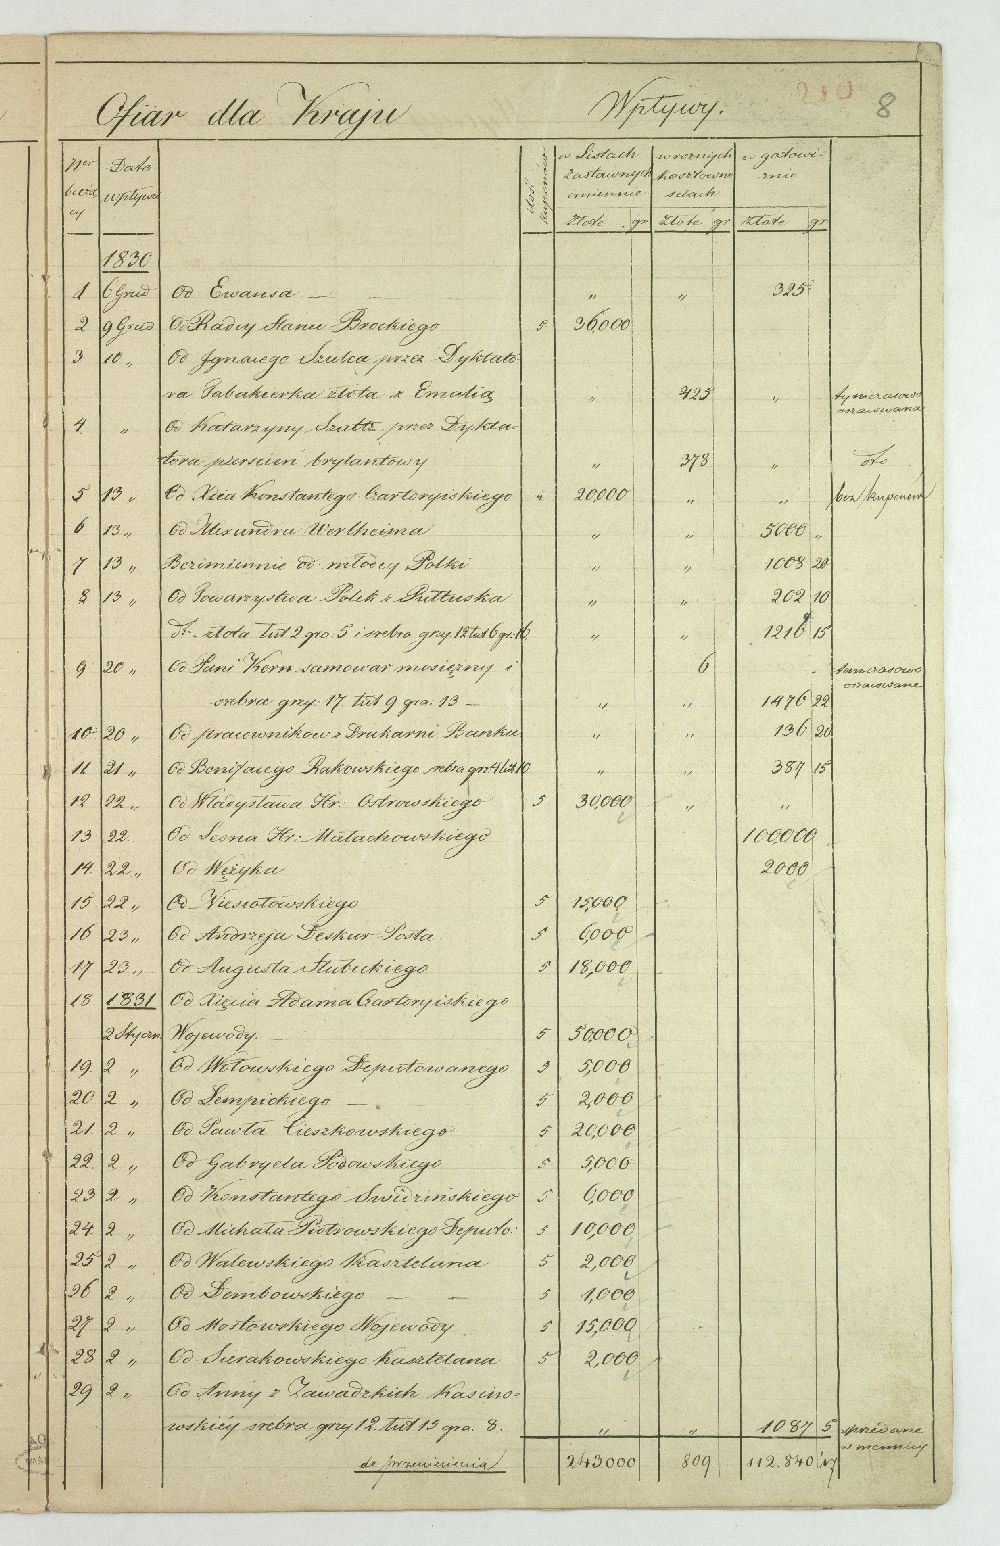 210 8
Ofiar dla Kraju Wpływy.
Data wpływu ilość kuponów w Listach Zastawnych imiennie w roznych kosztowno sciach w gotowi- znie
Złote gr Złote gr Złote gr
1830
1 6 Grud Od Ewansa — „ „ 325
2 9 Grud Od Radcy Stanu Brockiego 5 36,000
3 10 „ Od Jgnacego Szulca przez Dyktato
ra Tabakierka złota z Emalią „ 425 „ tymczasowo oszacowana
4. „ Od Katarzyny Szultz przez Dykta-
tora pierscień brylantowy „ 378 „ dto
5 13 „ Od Xcia Konstantego Czartoryiskiego „ 20,000 „ „ bez kuponów
6 13 „ Od Alexandra Wertheima „ „ 5000 „
7 13 „ Bezimiennie od młodey Polki „ „ 1008 20
8 13 „ Od Towarzystwa Polek z Pułtuska „ „ 202 10
dto złota łut 2 gra. 5 i srebra grzy 12 łut 6 gr. 16 „ „ 1216 15
9 20 „ Od Pani Kern samowar mosiężny i 6 tymczasowo oszacowane
srebra grzy. 17 łut 9 gra. 13 — „ „ 1476 22
10 20 „ Od pracowników z Drukarni Banku „ „ 136 20
11 21 „ Od Bonifacego Rakowskiego srebra grz 4 łut 10 „ „ 387 15
12 22 „ Od Władysława Hr: Ostrowskiego 5 30,000 „ „
13 22. Od Leona Hr: Małachowskiego 100,000
14. 22 „ Od Wężyka 2000
15 22 „ Od Niesiołowskiego 5 15,000
16 23 „ Od Andrzeja Deskur Posła 5 6,000
17 23 „ Od Augusta Słubickiego 5 18,000
18 1831 Od Xięcia Adama Czartoryiskiego
2 Stycz. Wojewody. — 5 50,000
19. 2 „ Od Wołowskiego Deputowanego 3 5,000
20 2 „ Od Lempickiego — 5 2,000
21. 2 „ Od Pawła Cieszkowskiego 5 20,000
22. 2 „ Od Gabryela Podowskiego 5 5,000
23 2 „ Od Konstantego Swidzińskiego 5 6,000
24. 2 „ Od Michała Piotrowskiego Deputo: 5 10,000
25 2 „ Od Walewskiego Kasztelana 5 2,000
26 2 „ Od Dembowskiego — — 5 1,000
27. 2 „ Od Mostowskiego Wojewody 5 15,000
28 2 „ Od Sierakowskiego Kasztelana 5 2,000
29 2 „ Od Anny z Zawadzkich Kasino-
wskiéy srebra grzy 12 łut 13 gra. 8. „ „ 1087 5 sprzedane w mennicy
do przeniesienia 243000 809 112.840 17